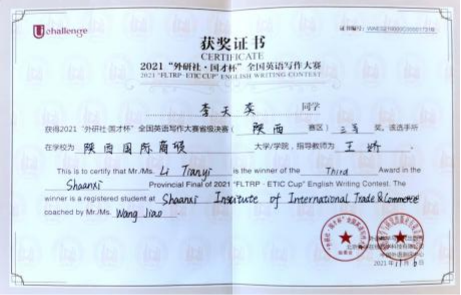 Uchallenge
获奖证书
CERTIFICATE
2021 "外研社·国才杯" 全国英语写作大赛
2021 "FLTRP · ETIC CUP" ENGLISH WRITING CONTEST
李天奕 同学
获得2021 "外研社·国才杯" 全国英语写作大赛省级决赛( 陕西 赛区) 三等 奖。该选手所
在学校为 陕西国际商贸 大学/学院,指导教师为 王娇 。
This is to certify that Mr./Ms. Li Tianyi is the winner of the Third Award in the
Shaanxi Provincial Final of 2021 "FLTRP · ETIC Cup" English Writing Contest. The
winner is a registered student at Shaanxi Institute of International Trade & Commerce
coached by Mr./Ms. Wang Jiao .
2021年11月6日